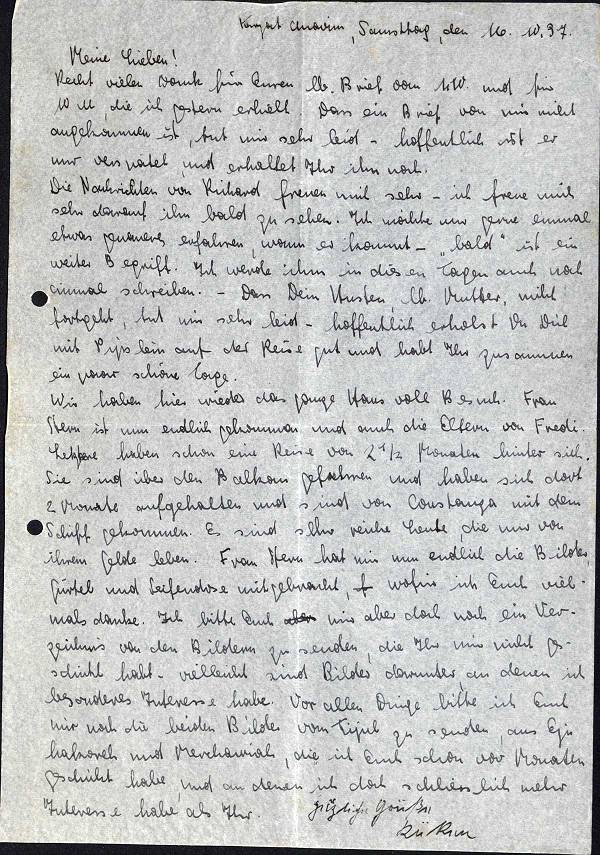 Kirjat Anavim, Samsttag, den 16. 10. 37.
Meine Lieben!
Recht vielen Dank für Euren lb. Brief vom und für
10 M, die ich gestern erhielt. Dass ein Brief von mir nicht
angekommen ist, tut mir sehr leid – hoffentlich ist er
nur verspätet, und erhaltet Ihr ihn noch.
Die Nachrichten von Richard freuen mich sehr – ich freue mich
sehr darauf ihn bald zu sehen. Ich möchte nur gerne einmal
etwas genaueres erfahren, wann er kommt – „bald" ist ein
weiter Begriff. Ich werde ihm in diesen Tagen auch noch
einmal schreiben. – Dass Dein Husten, lb. Mutter, nicht
fortgeht, tut mir sehr leid – hoffentlich erholst Du Dich
mit auf der Reise gut und habt Ihr zusammen
ein paar schöne Tage.
Wir haben hier wieder das ganze Haus voll Besuch. Frau
Stern ist nun endlich gekommen und auch die Eltern von Fredi.
Letztere haben schon eine Reise von 2 1/2 Monaten hinter sich.
Sie sind über den Balkan gefahren und haben sich dort
2 Monate aufgehalten und sind von Constanza mit dem
Schiff gekommen. Es sind sehr reiche Leute, die nur von
ihrem Gelde leben. Frau Stern hat mir nun endlich die Bilder,
Gürtel und Seifendose mitgebracht, wofür ich Euch viel-
mals danke. Ich bitte Euch mir aber doch noch ein Ver-
zeichnis von den Bildern zu senden, die Ihr mir nicht ge-
schickt habt – vielleicht sind Bilder darunter an denen ich
besonderes Interesse habe. Vor allen Dinge bitte ich Euch
mir noch die beiden Bilder vom Tijul zu senden, aus Ejn
hakoreh und Merchawiah, die ich Euch schon vor Monaten
geschickt habe, und an denen ich doch schliesslich mehr
Interesse habe als Ihr.
Herzliche Grüsse